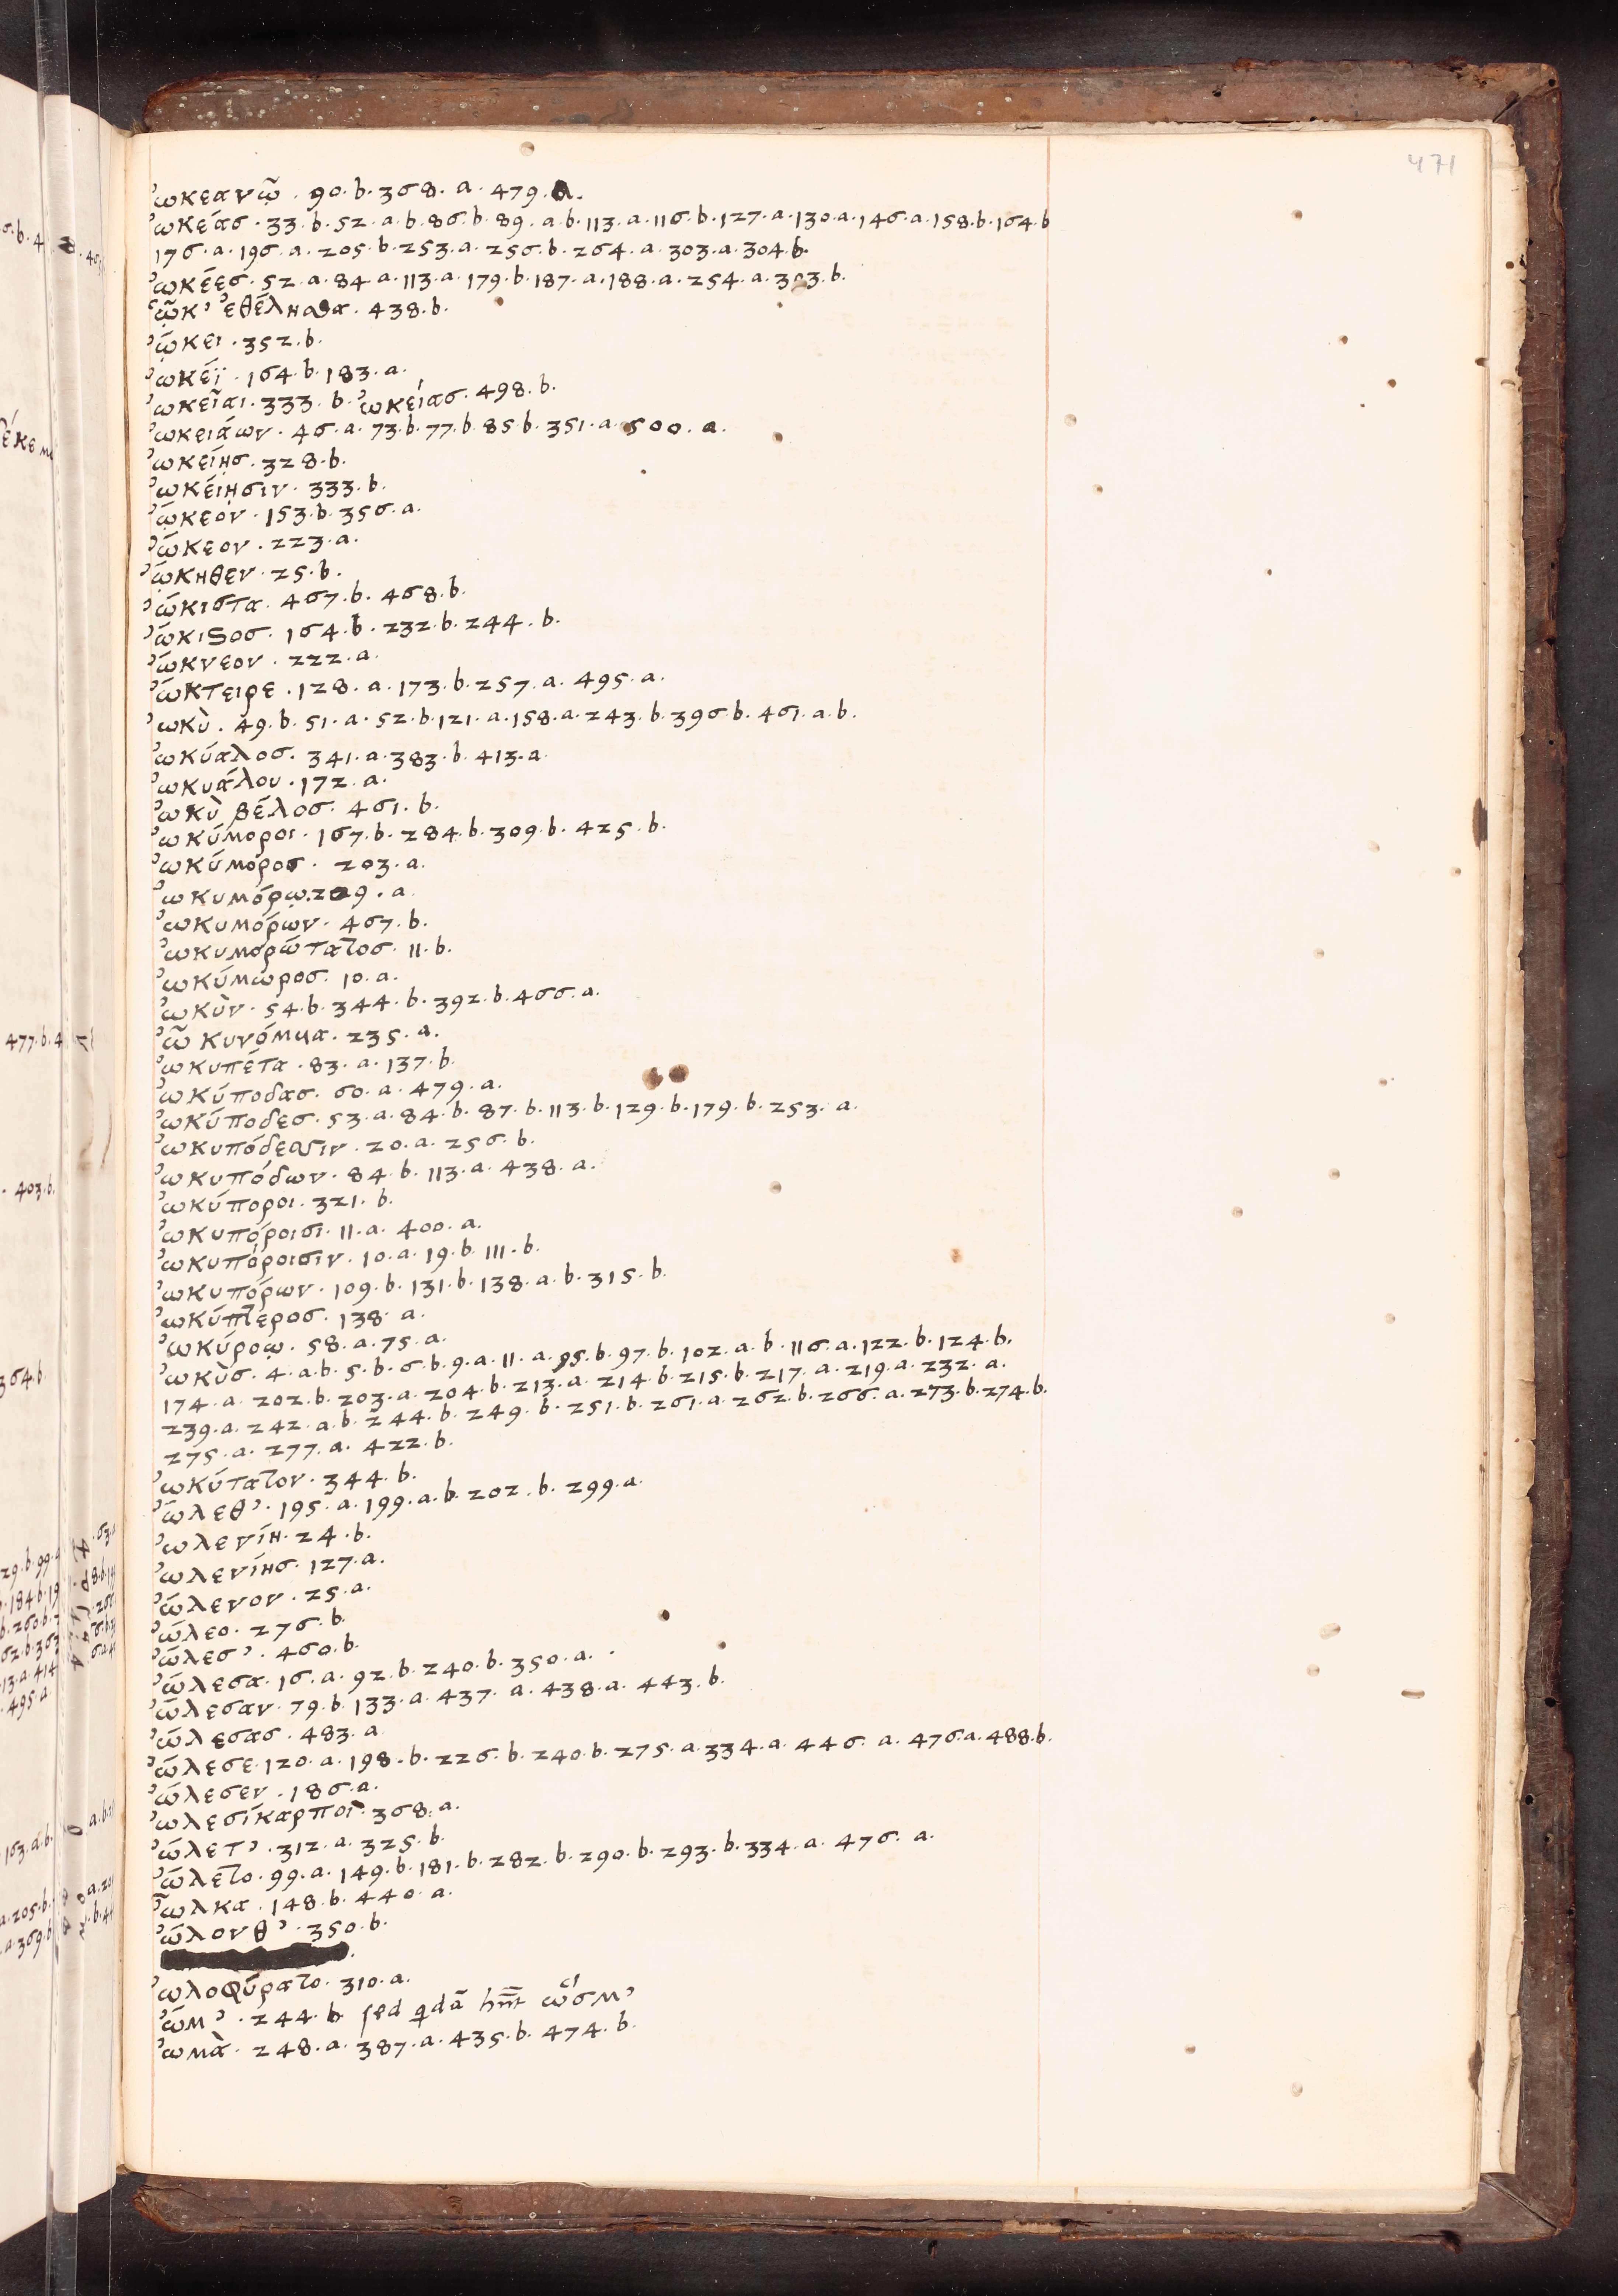 471
ὠκεανῷ . 90.b.368.a.479.a.
ὠκέας . 33.b.52.a.b.86.b.89.a.b.113.a.116.b.127.a.130.a.146.a.158.b.164.b
176.a.196.a.205.b.253.a.256.b.264.a.303.a.304.b.
ὠκέες . 52.a.84.a.113.a.179.b.187.a.188.a.254.a.303.b.
ᾧκ' ἐθέλησθα . 438.b.
ᾤκει . 352.b.
ὠκέϊ . 164.b.183.a.
ὠκεῖαι . 333.b. ὠκείας . 498.b.
ὠκειάων . 46.a.73.b.77.b.85.b.351.a.500.a.
ὠκείης . 328.b.
ὠκείησιν . 333.b.
ᾤκεον . 153.b.356.a.
ὤκεον . 223.a.
ᾤκηθεν . 25.b.
ὤκιστα . 467.b.468.b.
ὤκιστος . 164.b.232.b.244.b.
ὤκνεον . 222.a.
ὤκτειρε . 128.a.173.b.257.a.495.a.
ὠκὺ . 49.b.51.a.52.b.121.a.158.a.243.b.396.b.461.a.b.
ὠκύαλος . 341.a.383.b.413.a.
ὠκυάλου . 172.a.
ὠκὺ βέλος . 461.b.
ὠκύμοροι . 167.b.284.b.309.b.425.b.
ὠκύμορος . 203.a.
ὠκυμόρῳ.209.a.
ὠκυμόρων . 467.b.
ὠκυμορώτατος . 11.b.
ὠκύμωρος . 10.a.
ὠκὺν . 54.b.344.b.392.b.466.a.
ὦ κυνόμυα . 235.a.
ὠκυπέτα . 83.a.137.b.
ὠκύποδας . 60.a.479.a.
ὠκύποδες . 53.a.84.b.87.b.113.b.129.b.179.b.253.a.
ὠκυπόδεσσιν . 20.a.256.b.
ὠκυπόδων . 84.b.113.a.438.a.
ὠκύποροι . 321.b.
ὠκυπόροισι . 11.a.400.a.
ὠκυπόροισιν . 10.a.19.b.111.b.
ὠκυπόρων . 109.b.131.b.138.a.b.315.b.
ὠκύπτερος . 138.a.
ὠκύροῳ . 58.a.75.a.
ὠκὺς . 4.a.b.5.b.6.b.9.a.11.a.95.b.97.b.102.a.b.116.a.122.b.124.b.
174.a.202.b.203.a.204.b.213.a.214.b.215.b.217.a.219.a.232.a.
239.a.242.a.b.244.b.249.b.251.b.261.a.262.b.266.a.273.b.274.b.
275.a.277.a.422.b.
ὠκύτατον . 344.b.
ὤλεθ' . 195.a.199.a.b.202.b.299.a.
ὠλενίη . 24.b.
ὠλενίης . 127.a.
ὤλενον . 25.a.
ὤλεο . 276.b.
ὤλεσ' . 460.b.
ὤλεσα . 16.a.92.b.240.b.350.a.
ὤλεσαν . 79.b.133.a.437.a.438.a.443.b.
ὤλεσας . 483.a.
ὤλεσε.120.a.198.b.226.b.240.b.275.a.334.a.446.a.476.a.488.b.
ὤλεσεν . 186.a.
ὠλεσίκαρποι . 368.a.
ὤλετ' . 312.a.325.b.
ὤλετο . 99.a.149.b.181.b.282.b.290.b.293.b.334.a.476.a.
ὦλκα . 148.b.440.a.
ὤλονθ' . 350.b.
ὠλοφύρατο . 310.a.
ὤμ' . 244.b sed quidā hnt ὥσμ'
ὠμὰ . 248.a.387.a.435.b.474.b.